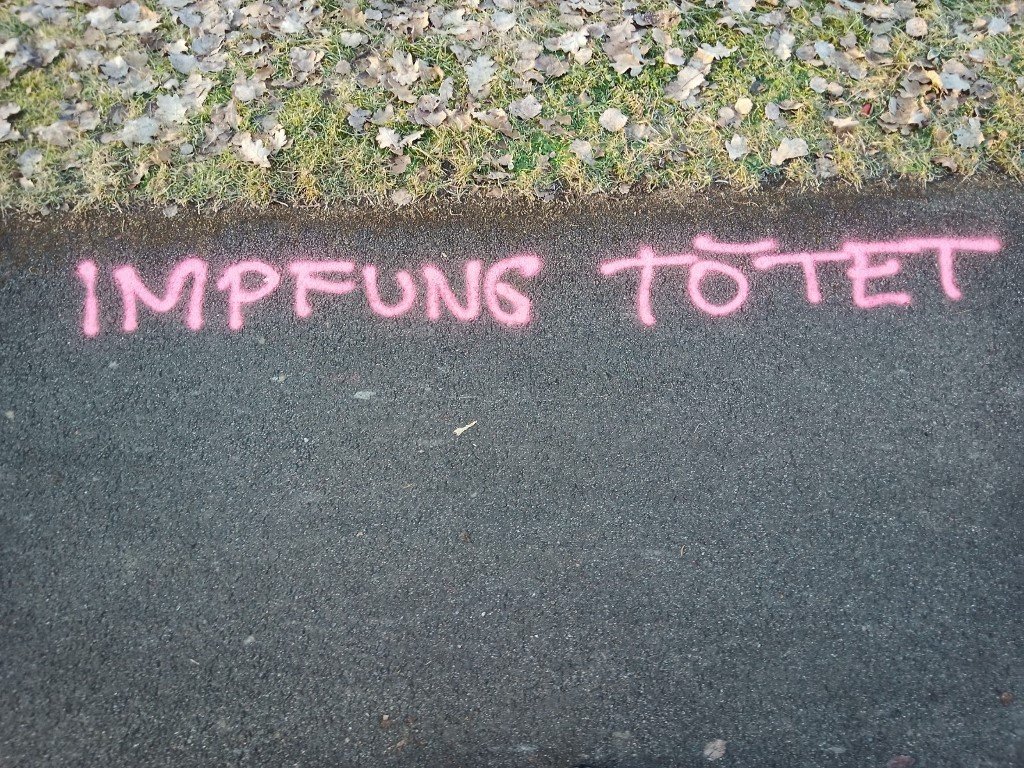 IMPFUNG TÖTET